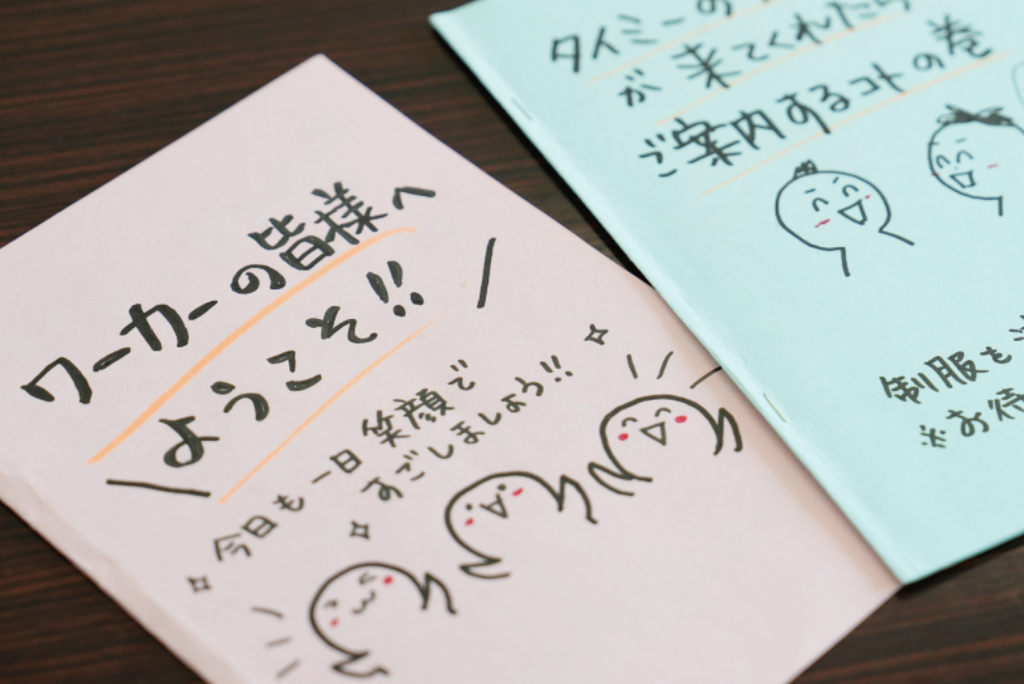 ワーカーの皆様へ
ようこそ!!
今日も一日笑顔で
すごしましょう!!
タイミーの
が来てくれたら
ご案内するコトの巻
制服も
※お待